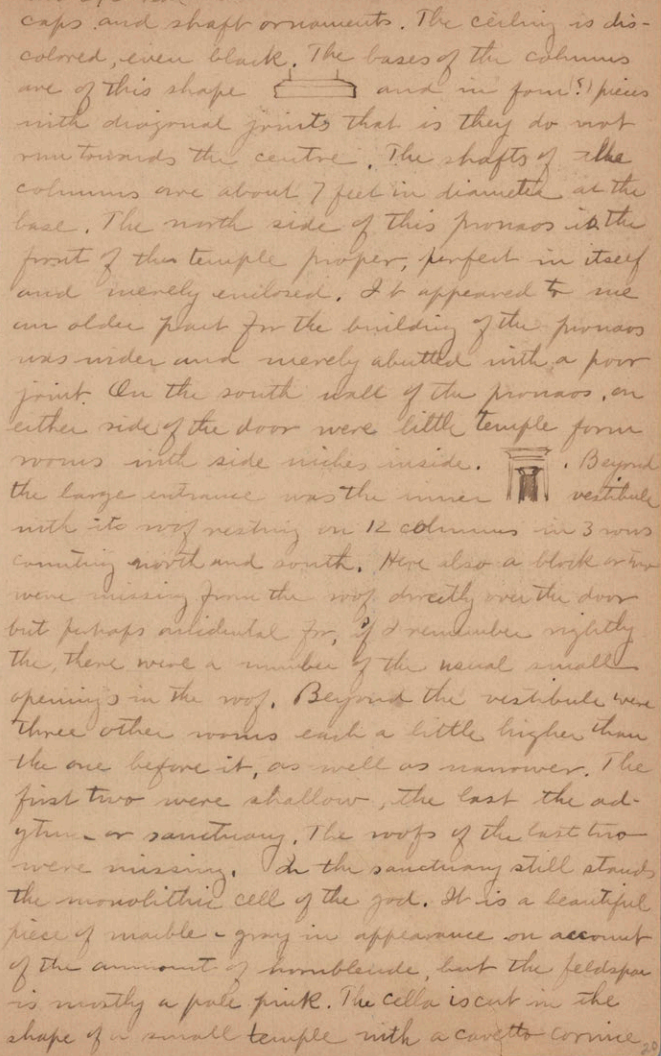 caps and shaft ornaments. The ceiling is dis-
colored, even black. The bases of the columns
are of this shape and in four (?) pieces
with diagonal joints that is they do not
run towards the centre. The shafts of the
columns are about 7 feet in diameter at the
base. The north side of this pronaos is the
front of the temple proper, perfect in itself
and merely enclosed. It appeared to me
an older part for the building of the pronaos
was wider and merely abutted with a poor
joint. On the south wall of the pronaos, on
either side of the door were little temple form
rooms with side niches inside. . Beyond
the large entrance was the inner vestibule
with its roof resting on 12 columns in 3 rows
counting north and south. Here also a block or two
were missing from the roof directly over the door
but perhaps accidental for, if I remember rightly
the, there were a number of the usual small
openings in the roof. Beyond the vestibule were
three other rooms each a little higher than
the one before it, as well as narrower. The
first two were shallow, the last the ad-
ytum or sanctuary. The roofs of the last two
were missing. In the sanctuary still stands
the monolithic cell of the god. It is a beautiful
piece of marble - gray in appearance on account
of the amount of hornblende, but the feldspar
is mostly a pale pink. The cella is cut in the
shape of a small temple with a cavetto cornice